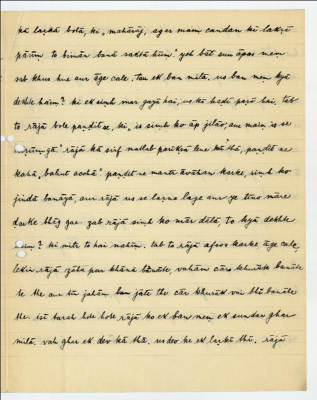 kā laṛkā bolā, ki, "mahārāj, agar maim candan kī lakṛī
pāūm to bimān banā saktā hūm." yeh bāt sun āpas mem
sab khus hue aur āge cale. tau ek ban milā, us ban mem kyā
dekhte haim? ki ek simh mar gayā hai, uskī haḍī paṛī hai. tab
to rājā bole paṇḍit se, ki, is simh ko āp jilāo, aur maim is se
laṛūmgā." rājā kā sirf matlab parīkṣā lene kā thā, paṇḍit ne
kahā, "bahut acchā." paṇḍit ne mantr āvāhan karke, simh ko
jindā banāyā, aur rājā us se laṛne lage aur ye tīno māre
ḍarke bhāg gae. jab rājā simh ko mār ḍālā, to kyā dekhte
haim? ki mitr to hai nahīm. tab to rājā afsos karke āge cale,
lekin rājā jahā par khānā banāte, vahām cāro khurāk banāte
the aur tīn jahām ban jāte the cār khurāk vīr bhī banāte
the. isī tarah hote hote rājā ko ek ban mem ek sundar ghar
milā. vah ghar ek dev kā thā. us dev ke ek laṛkī thī. rājā